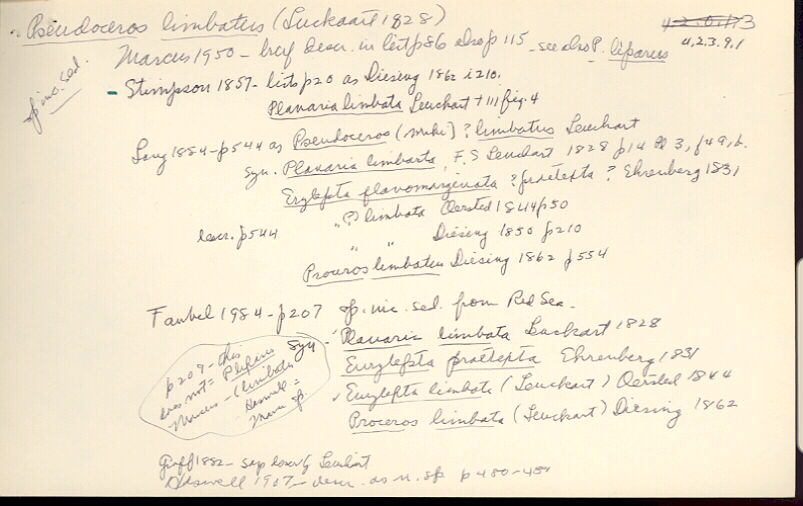 Pseudoceros limbatus (Leuckart 1828)
4.2.0.13
4.2.3.9.1
sp. inc. sed.
Marcus 1950 - brief descr. in list p86 also p 115 - see also P. liparus
- Stimpson 1857 - lists p20 as Diesing 1862 i 210.
Planaria limbata Leuchart + III fig. 4
Lang 1884 - p544 as Pseudoceros (mihi) ? limbatus Leuchart
Syn. Planaria limbata, F. S Leuchart 1828 p14 Pl 3, f 49, b.
Erylepta flavomarginata ? praetexta ? Ehrenberg 1831
descr. p544
" (?) limbata Oersted 1844 p50
" " Diesing 1850 p210
Proceros limbatus Diesing 1862 p 554
Faubel 1984 - p207 sp. inc. sed. from Red Sea -
Syn - Planaria limbata Leuckart 1828
Eurylepta praetexta Ehrenberg 1831
Eurylepta limbata (Leuckart) Oersted 1844
Proceros limbata (Leuckart) Diesing 1862
p209 - this
does not =
Marcus - (limbatus
Haswell =
Marcus sp.
Graff 1882 -
Haswell 1907 - descr. as n. sp p 480-